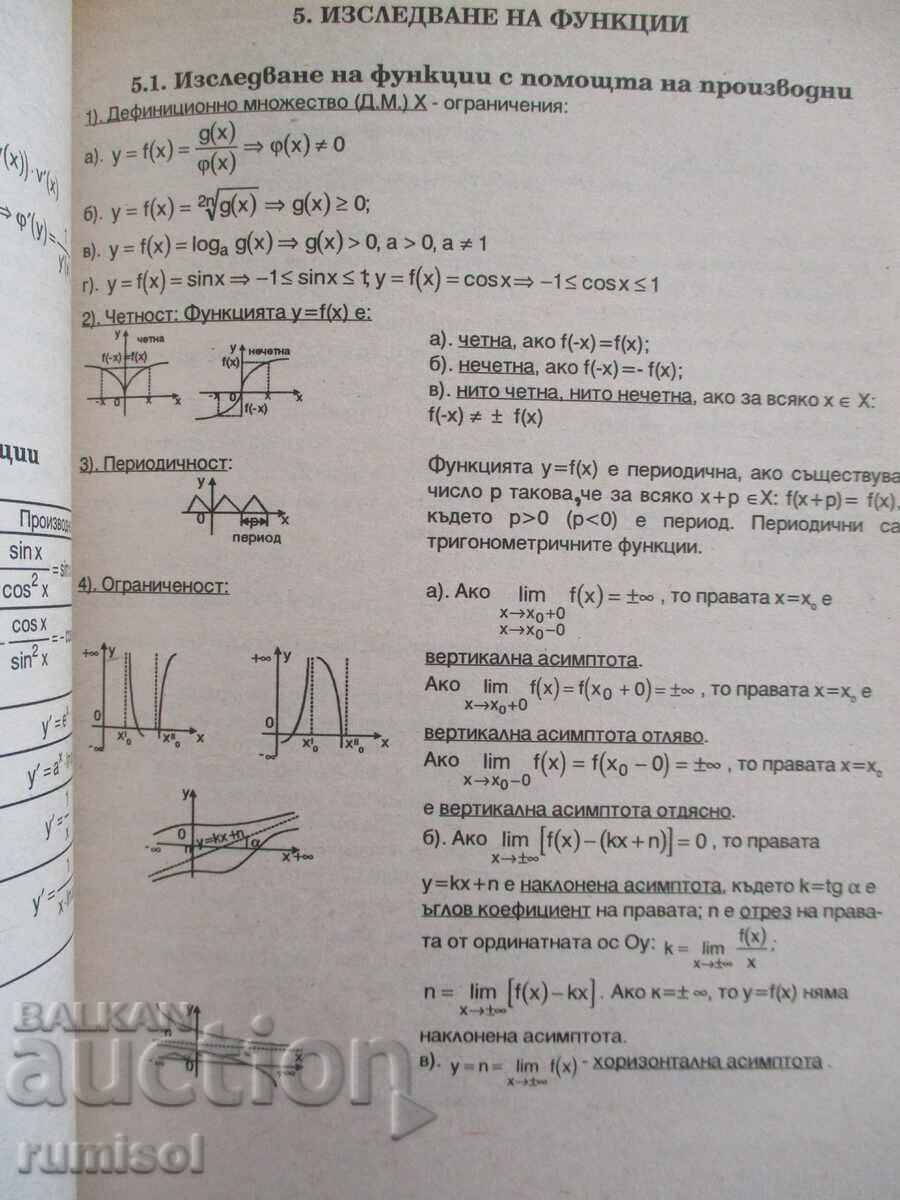 5. ИЗСЛЕДВАНЕ НА ФУНКЦИИ
5.1. Изследване на функции с помощта на производни
1). Дефиниционно множество (Д.М.) X - ограничения:
а). y = f(x) = g(x)/φ(x) ⇒ φ(x) ≠ 0
б). y = f(x) = ²ⁿ√g(x) ⇒ g(x) ≥ 0;
в). y = f(x) = logₐ g(x) ⇒ g(x) > 0, a > 0, a ≠ 1
г). y = f(x) = sinx ⇒ −1 ≤ sinx ≤ 1, y = f(x) = cosx ⇒ −1 ≤ cosx ≤ 1
2). Четност: Функцията y=f(x) е:
y четна
f(-x)=f(x)
-x 0 x x
y нечетна
f(x)
-x 0 x x
f(-x)
а). четна, ако f(-x)=f(x);
б). нечетна, ако f(-x)=- f(x);
в). нито четна, нито нечетна, ако за всяко x ∈ X:
f(-x) ≠ ± f(x)
3). Периодичност:
y
0 p x
период
Функцията y=f(x) е периодична, ако съществува
число p такова,че за всяко x+p ∈X: f(x+p)= f(x),
където p>0 (p<0) е период. Периодични са
тригонометричните функции.
4). Ограниченост:
+∞ y
0
-∞ xᴵ₀ xᴵᴵ₀ x
+∞ y
0
-∞ xᴵ₀ xᴵᴵ₀ x
а). Ако lim f(x) = ±∞ , то правата x=x₀ е
x→x₀+0
x→x₀−0
вертикална асимптота.
Ако lim f(x) = f(x₀ + 0) = ±∞ , то правата x=x₀ е
x→x₀+0
вертикална асимптота отляво.
Ако lim f(x) = f(x₀ − 0) = ±∞ , то правата x=x₀
x→x₀−0
е вертикална асимптота отдясно.
y
0 y=kx+n α
-∞ n x +∞
б). Ако lim [f(x) − (kx + n)] = 0 , то правата
x→±∞
y=kx+n е наклонена асимптота, където k=tg α е
ъглов коефициент на правата; n е отрез на права-
та от ординатната ос Oy: k = lim f(x)/x ;
x→±∞
n = lim [f(x) − kx] . Ако к=± ∞, то y=f(x) няма
x→±∞
наклонена асимптота.
y
n
0 x
-∞ +∞
в). y = n = lim f(x) - хоризонтална асимптота .
x→±∞
ции
Производн
sin x
cos² x
cos x
sin² x
BALKAN
auction
rumisol